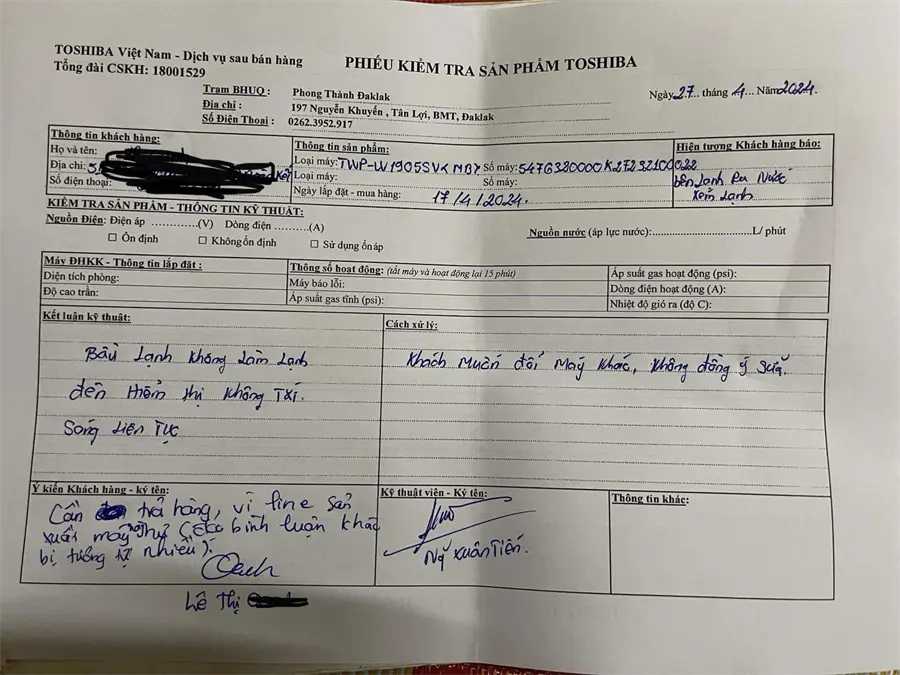 TOSHIBA Việt Nam - Dịch vụ sau bán hàng
Tổng đài CSKH: 18001529
PHIẾU KIỂM TRA SẢN PHẨM TOSHIBA
Trạm BHUQ : Phong Thành Đaklak
Địa chỉ : 197 Nguyễn Khuyến , Tân Lợi, BMT, Đaklak
Số Điện Thoại : 0262.3952.917
Ngày 27 tháng 4 Năm 2024.
Thông tin khách hàng:
Họ và tên:
Địa chỉ:
Số điện thoại:
Thông tin sản phẩm:
Loại máy: TWP-W1905SVK MB) Số máy: 5476320000K27232100022
Loại máy: Số máy:
Ngày lắp đặt - mua hàng: 17/4/2024.
Hiện tượng Khách hàng báo:
bên Lạnh Ra Nước
kém Lạnh
KIỂM TRA SẢN PHẨM - THÔNG TIN KỸ THUẬT:
Nguồn Điện: Điện áp ............(V) Dòng điện .........(A)
☐ Ổn định ☐ Không ổn định ☐ Sử dụng ổn áp
Nguồn nước (áp lực nước):..............................L/ phút
Máy ĐHKK - Thông tin lắp đặt :
Diện tích phòng:
Độ cao trần:
Thông số hoạt động: (tắt máy và hoạt động lại 15 phút)
Máy báo lỗi:
Áp suất gas tĩnh (psi):
Áp suất gas hoạt động (psi):
Dòng điện hoạt động (A):
Nhiệt độ gió ra (độ C):
Kết luận kỹ thuật:
Bầu Lạnh Không Làm Lạnh
đèn Hiểm thị không TXT.
Sáng Liên Tục
Cách xử lý:
Khách muốn đổi máy khác, không đồng ý sửa.
Ý kiến Khách hàng - ký tên:
Cần trả hàng, vì line sản
xuất máy hư (có bình luận khác
bị tương tự nhiều).
Lê Thị
Kỹ thuật viên - Ký tên:
Ng Xuân Tiến.
Thông tin khác: